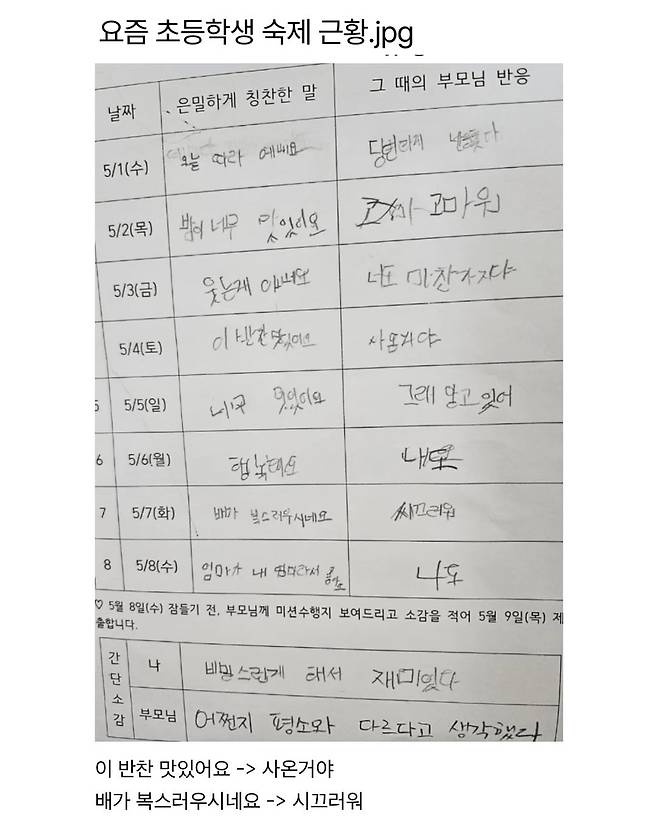 요즘 초등학생 숙제 근황.jpg
날짜 은밀하게 칭찬한 말 그 때의 부모님 반응
5/1(수) 오늘 따라 예뻐요 당연하게
5/2(목) 밥이 너무 맛있어요 고마워
5/3(금) 웃는게 이뻐요 너도 마찬가지야
5/4(토) 이 반찬 맛있어요 사온거야
5 5/5(일) 너무 맛있어요 그래 알고 있어
6 5/6(월) 행복해요 내도
7 5/7(화) 배가 복스러우시네요 씨끄러워
8 5/8(수) 엄마가 내 엄마라서 좋아요 나도
♡ 5월 8일(수) 잠들기 전, 부모님께 미션수행지 보여드리고 소감을 적어 5월 9일(목) 제
출합니다.
간단소감 나 비밀스럽게 해서 재미있다
부모님 어쩐지 평소와 다르다고 생각했다
이 반찬 맛있어요 -> 사온거야
배가 복스러우시네요 -> 시끄러워